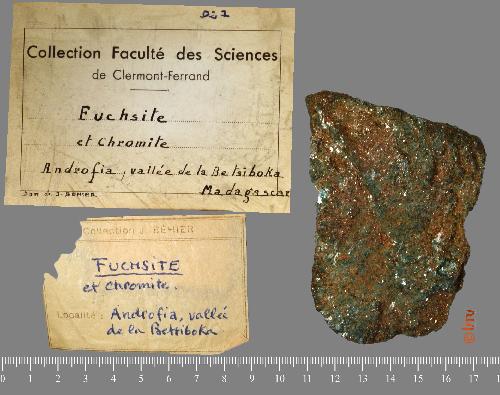 Collection Faculté des Sciences
de Clermont-Ferrand
Fuchsite
et Chromite
Androfia, vallée de la Betsiboka
Madagascar
Don de J. BÉHIER
Collection J. BÉHIER
FUCHSITE
et chromite.
Localité : Androfia, vallée
de la Betsiboka
0 1 2 3 4 5 6 7 8 9 10 11 12 13 14 15 16 17